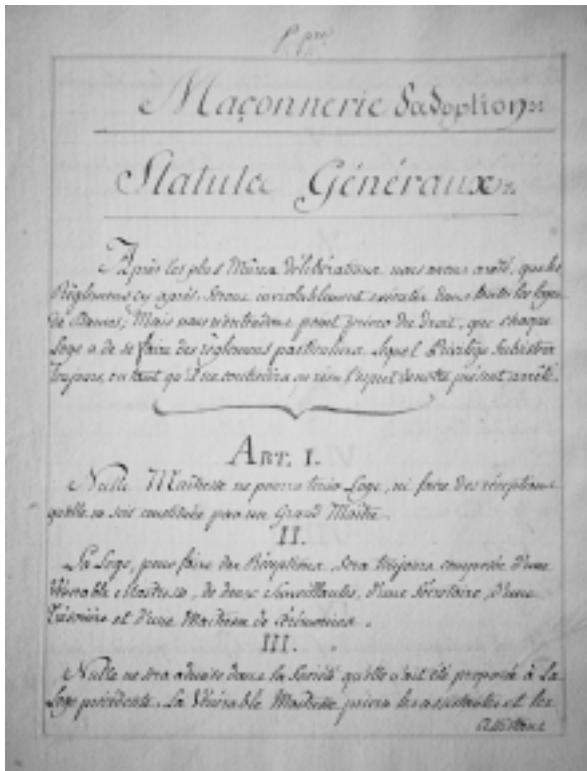 P. pre.
Maçonnerie d'adoption
Statuts Généraux
Après les plus Mures délibérations nous avons arrêté, que les
Règlemens cy après seront inviolablement exécutés dans toutes les loges
de Dames; Mais nous n'entendons point priver du droit, que chaque
Loge a de se faire des règlemens particuliers, lequel Privilège subsistera
toujours, en tant qu'il ne contredira en rien l'esprit de notre présent arrêté.
ART. I.
Nulle Maîtresse ne pourra tenir Loge, ni faire des réceptions
qu'elle ne soit constituée par un Grand Maître.
II.
La Loge, pour faire des Réceptions, sera toujours composée d'une
Vénérable Maîtresse, de deux Surveillantes, d'une Sécretaire, d'une
Trésorière et d'une Maîtresse de cérémonies.
III.
Nulle ne sera admise dans la Société qu'elle n'ait été proposée à la
Loge précédente. La Vénérable Maîtresse priera les assistantes et les
assistans